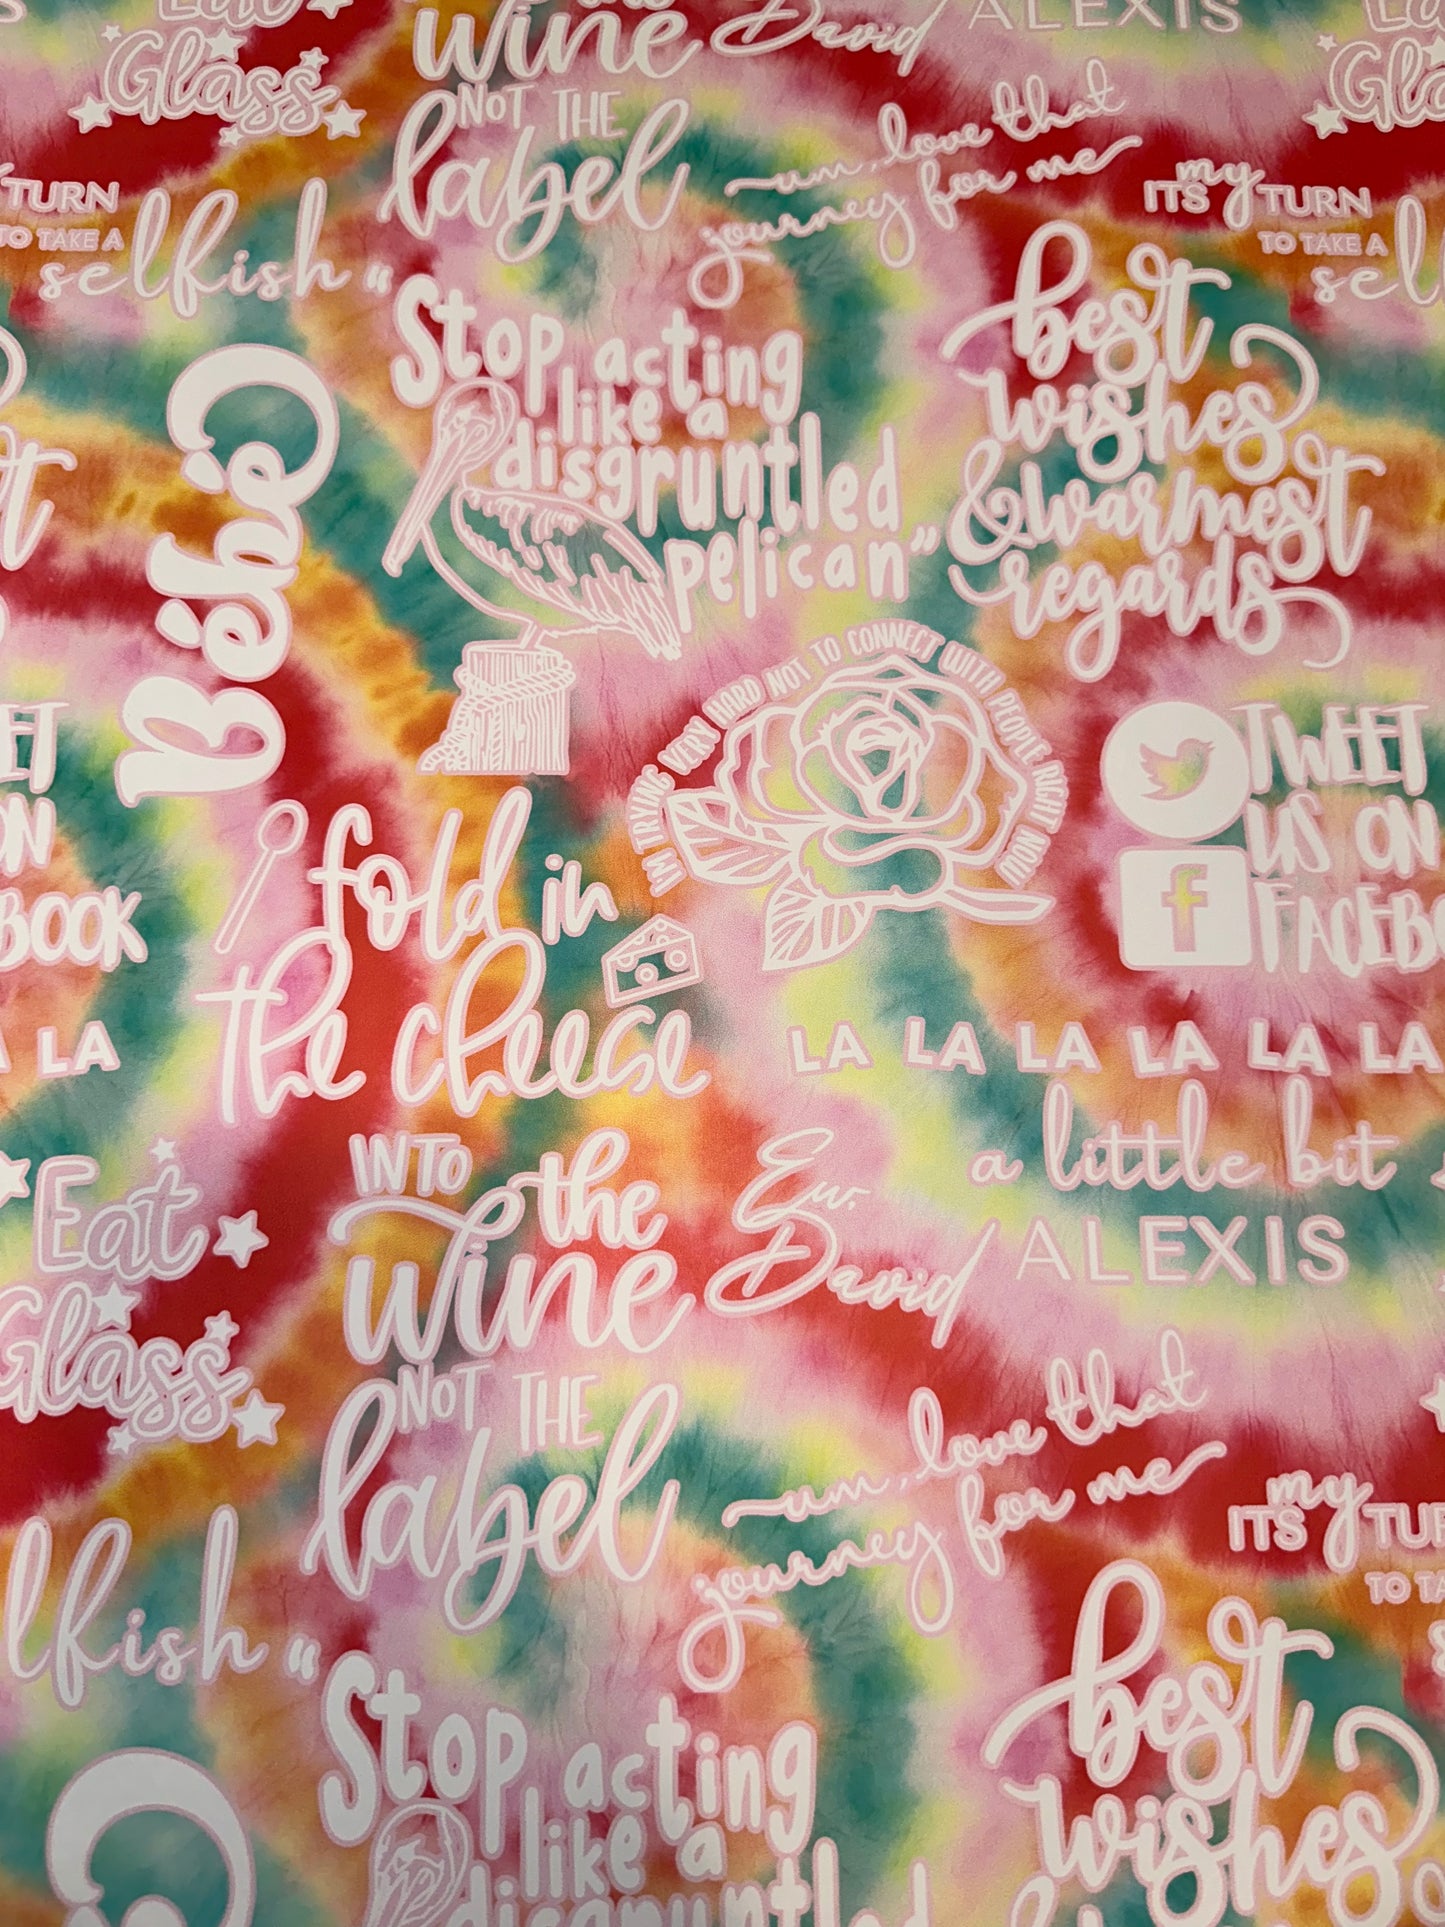 Eat
Glass
the
wine
NOT THE
label
David
ALEXIS
Ea
Gla
um, love that
journey for me
TURN
TO TAKE A
selfish
ITS my TURN
TO TAKE A
sel
"Stop acting
like a
disgruntled
pelican"
best
wishes
& warmest
regards
Bébé
IM TRYING VERY HARD NOT TO CONNECT WITH PEOPLE RIGHT NOW
TWEET
US ON
FACEB
ET
ON
BOOK
fold in
the cheese
LA
LA LA LA LA LA LA
a little bit
ALEXIS
INTO
the
wine
NOT THE
label
Ew,
David
Eat
Glass
um, love that
journey for me
ITS my TUR
TO TA
lfish
"Stop acting
like a
disgruntled
best
wishes